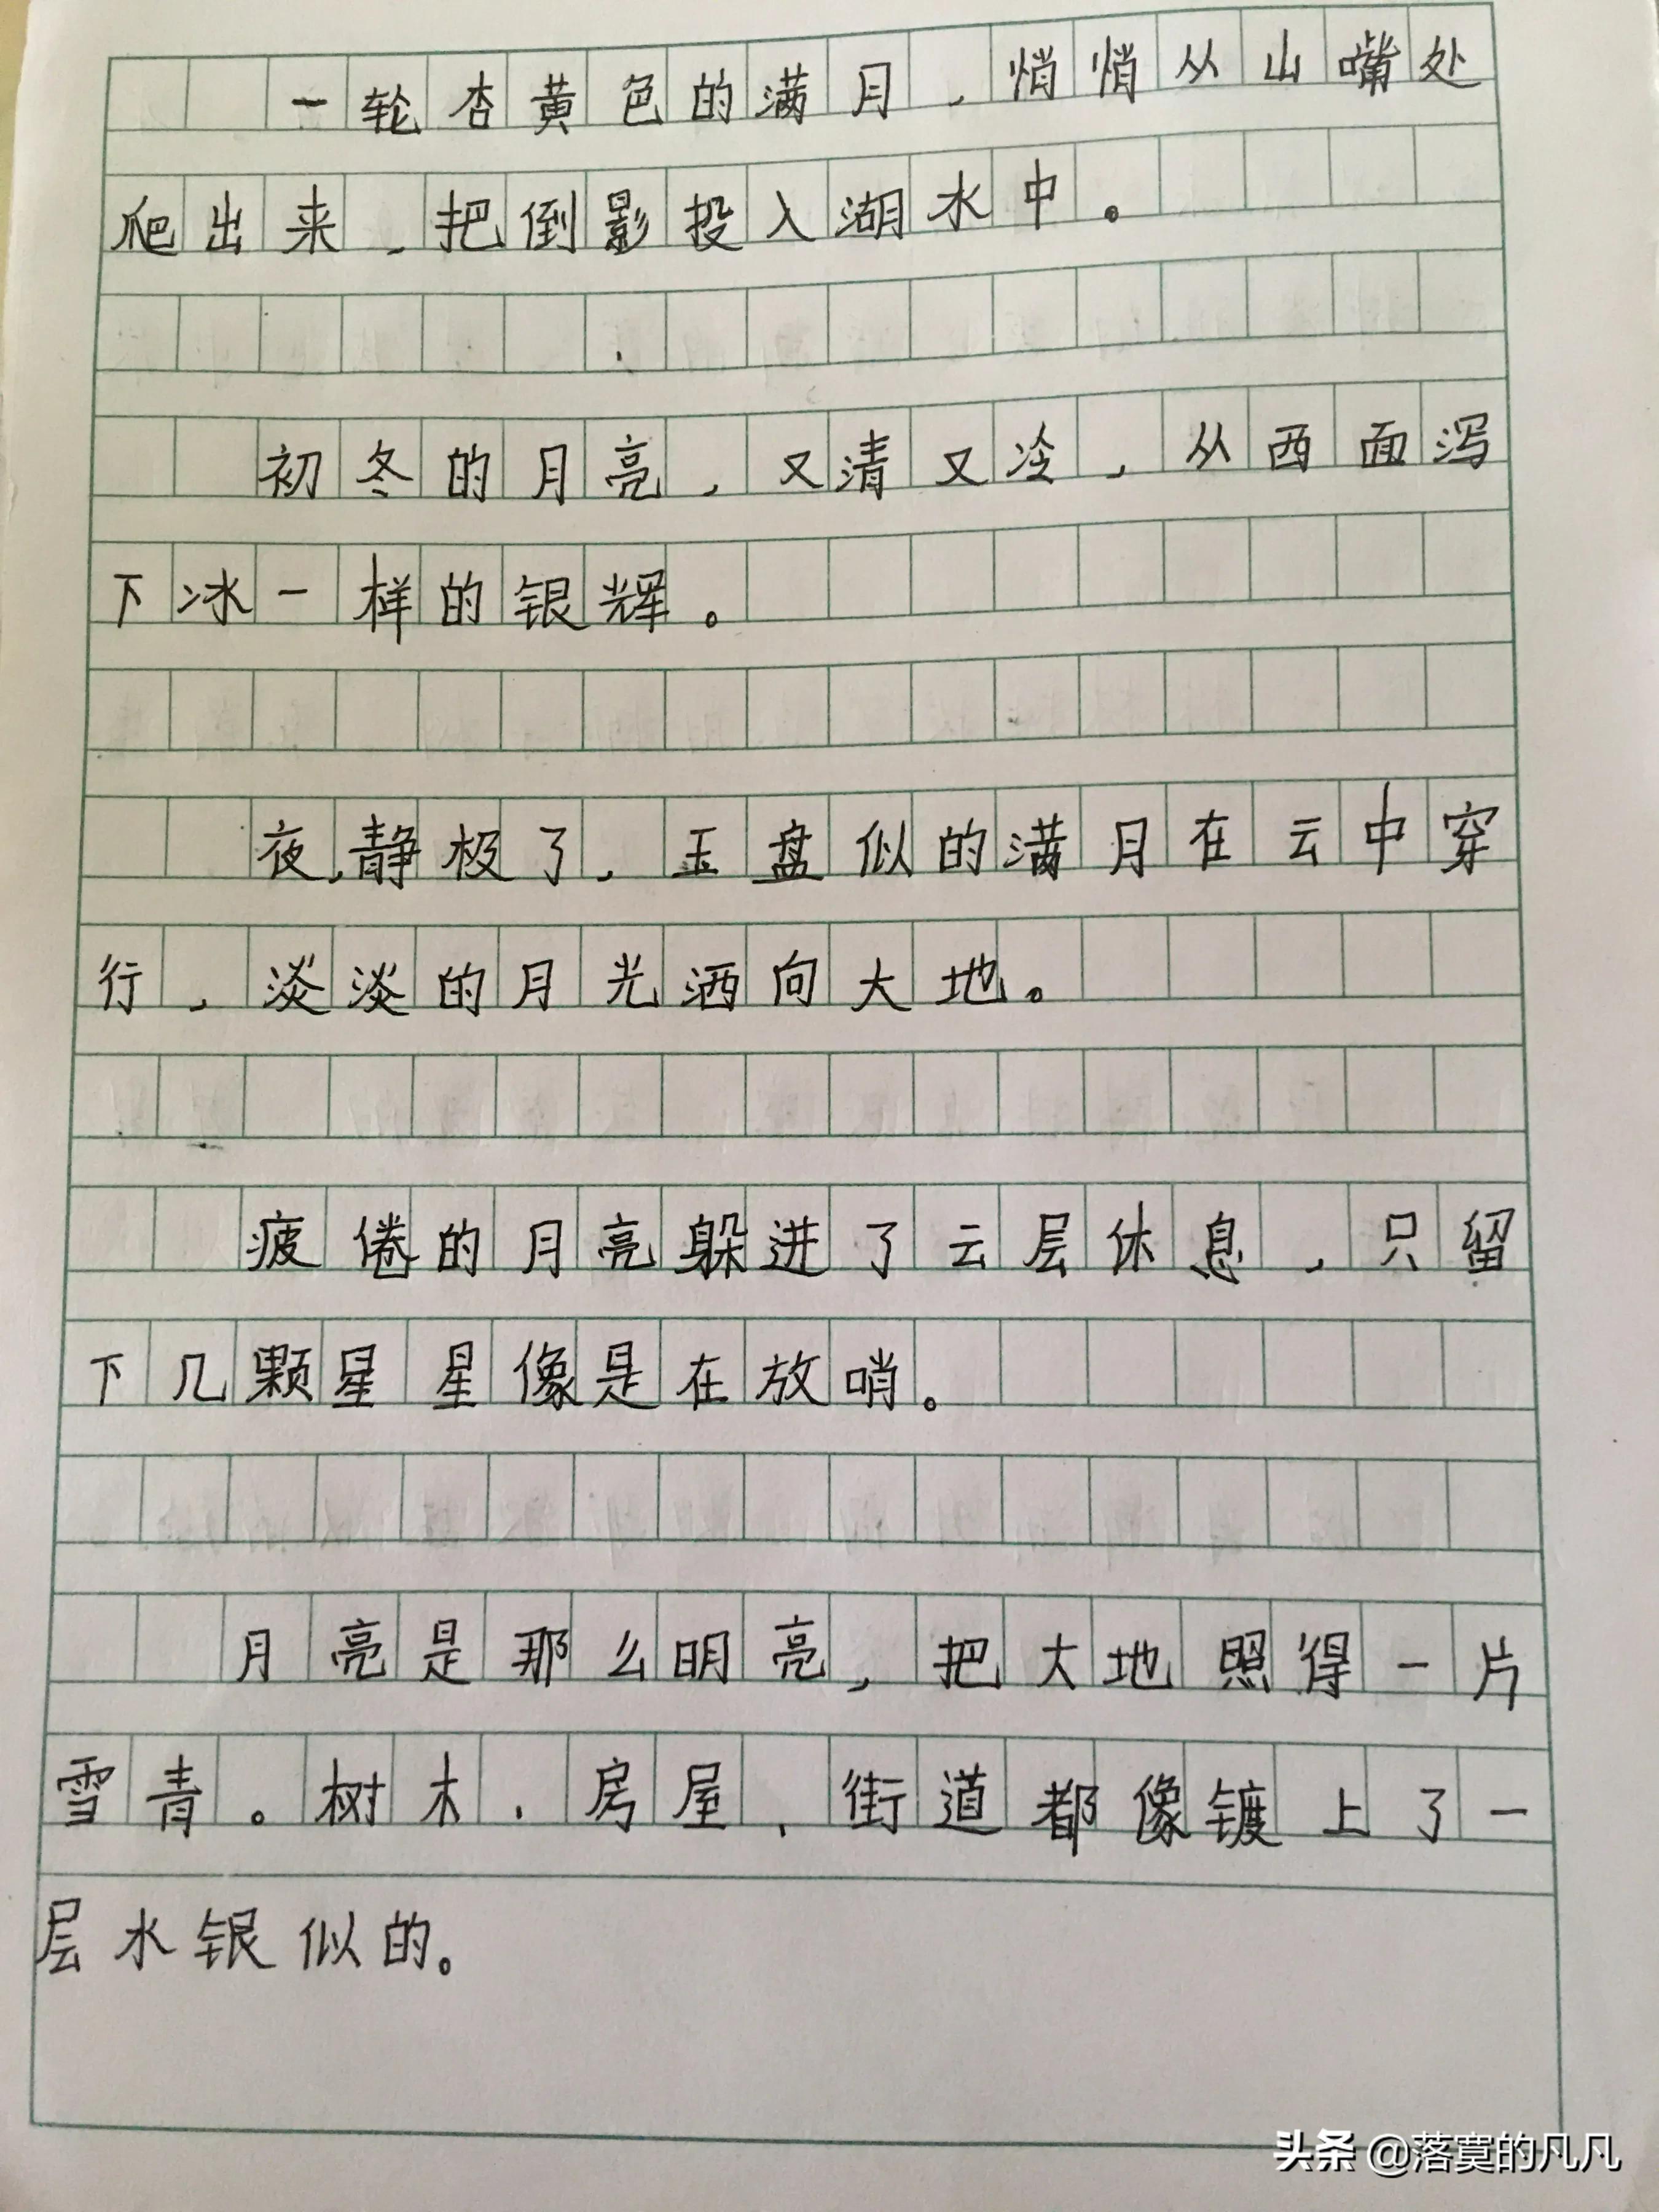 一轮杏黄色的满月，悄悄从山嘴处
爬出来，把倒影投入湖水中。
初冬的月亮，又清又冷，从西面泻
下冰一样的银辉。
夜，静极了，玉盘似的满月在云中穿
行，淡淡的月光洒向大地。
疲倦的月亮躲进了云层休息，只留
下几颗星星像是在放哨。
月亮是那么明亮，把大地照得一片
雪青。树木、房屋、街道都像镀上了一
层水银似的。
头条 @落寞的凡凡